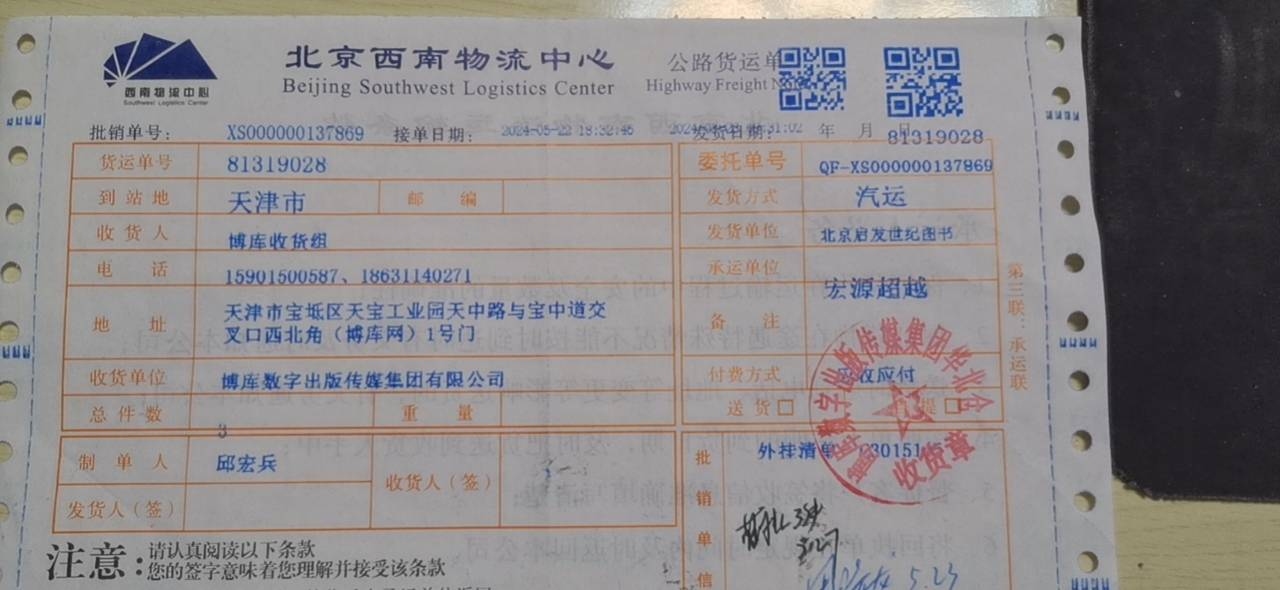 西南物流中心
Southwest Logistics Center
北京西南物流中心
Beijing Southwest Logistics Center
公路货运单
Highway Freight
批销单号: XS000000137869 接单日期: 2024-05-22 18:32:45 发货日期: 年 月 日
81319028
货运单号 81319028 委托单号 QF-XS000000137869
到站地 天津市 邮编 发货方式 汽运
收货人 博库收货组 发货单位 北京启发世纪图书
电话 15901500587、18631140271 承运单位 宏源超越
地址 天津市宝坻区天宝工业园天中路与宝中道交
叉口西北角（博库网）1号门
备注
收货单位 博库数字出版传媒集团有限公司 付费方式 应收应付
总件数 3 重量 送货□ 自提□
制单人 邱宏兵 收货人（签）
发货人（签）
批销单信
外挂清单
收货章
5.23
第三联：承运联
注意: 请认真阅读以下条款
您的签字意味着您理解并接受该条款